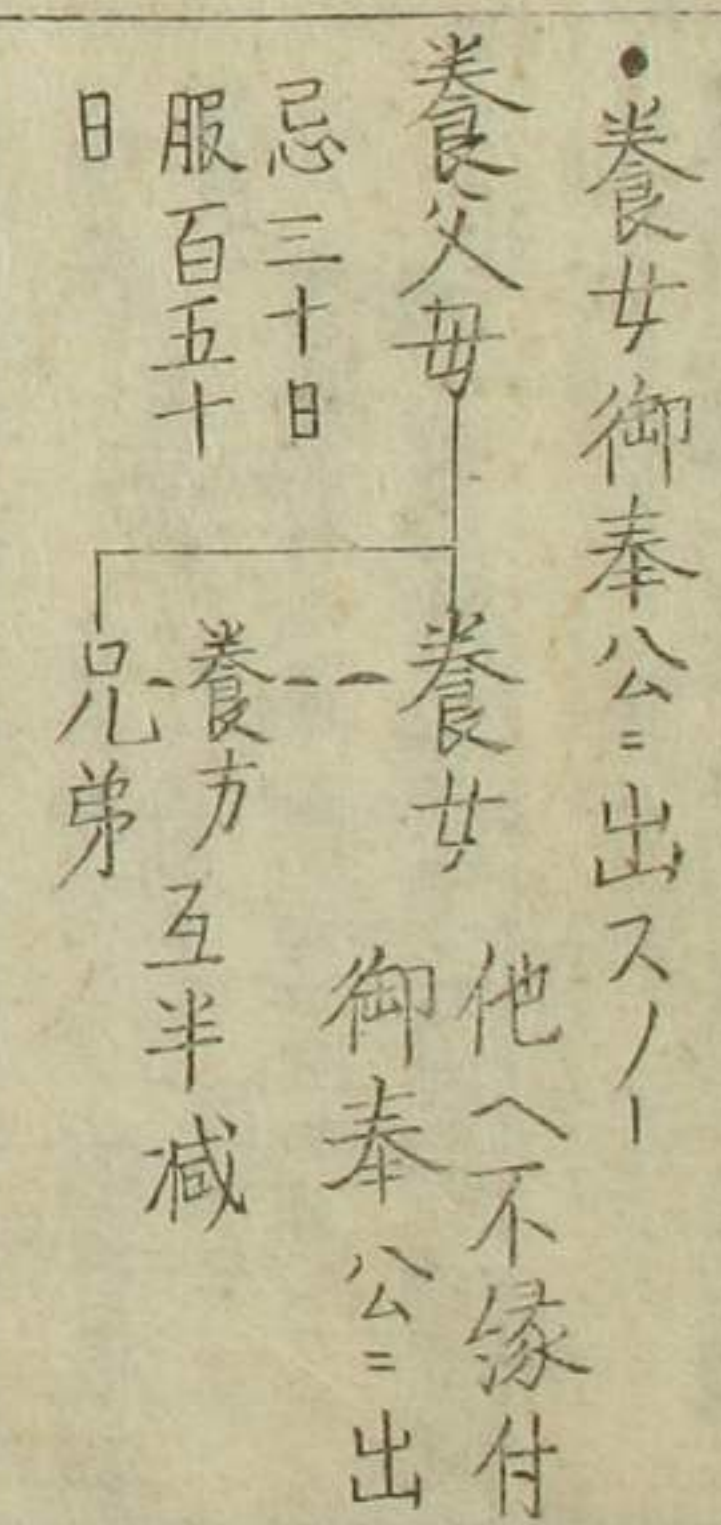 ●養女御奉公ニ出スノヿ
養父母
忌三十日
服百五十
日
養女
他へ不縁付
御奉公ニ出
養方
兄弟
互半減